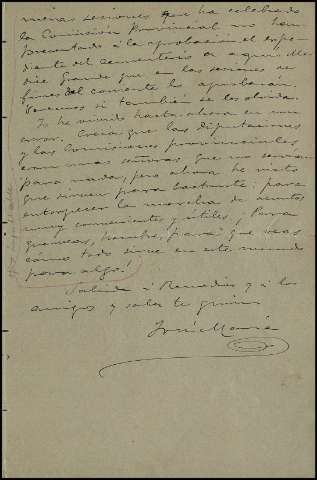 meras sesiones que ha celebrado
la Comisión Provincial no han
presentado a la aprobación el expe-
diente del cementerio de aquí. Me
dice Grande que en las sesiones de
fines del corriente lo aprobarán.
Veremos si también se les olvida.
Yo he vivido hasta ahora en un
error. Creía que las diputaciones
y las Comisiones provinciales
eran unas señoras que no servían
para nada, pero ahora he visto
que sirven para bastante: para
entorpecer la marcha de asuntos
muy convenientes y útiles. ¡Para
que veas, hombre, para que veas
cómo todo sirve en este mundo
para algo!
Saluda a Remedios y a los
amigos y sabes te quiere
José María